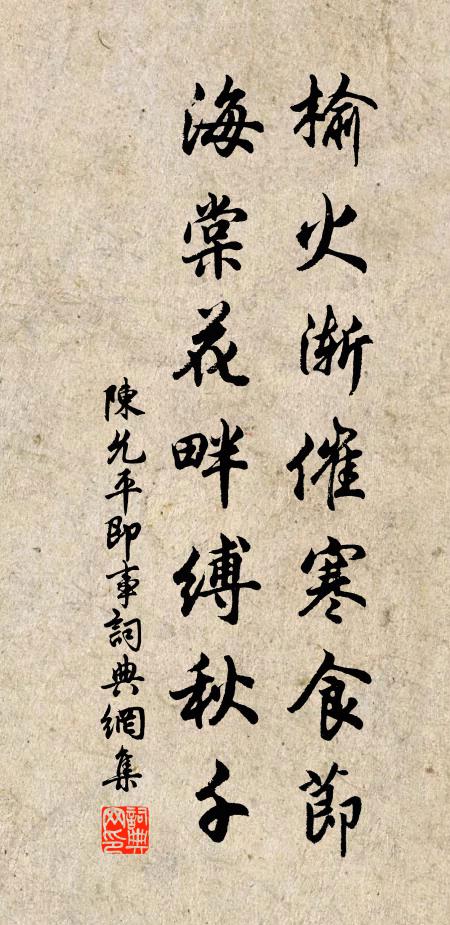 榆火漸催寒食節
海棠花畔縛秋千
陳允平即事詞典網集
詞典网印